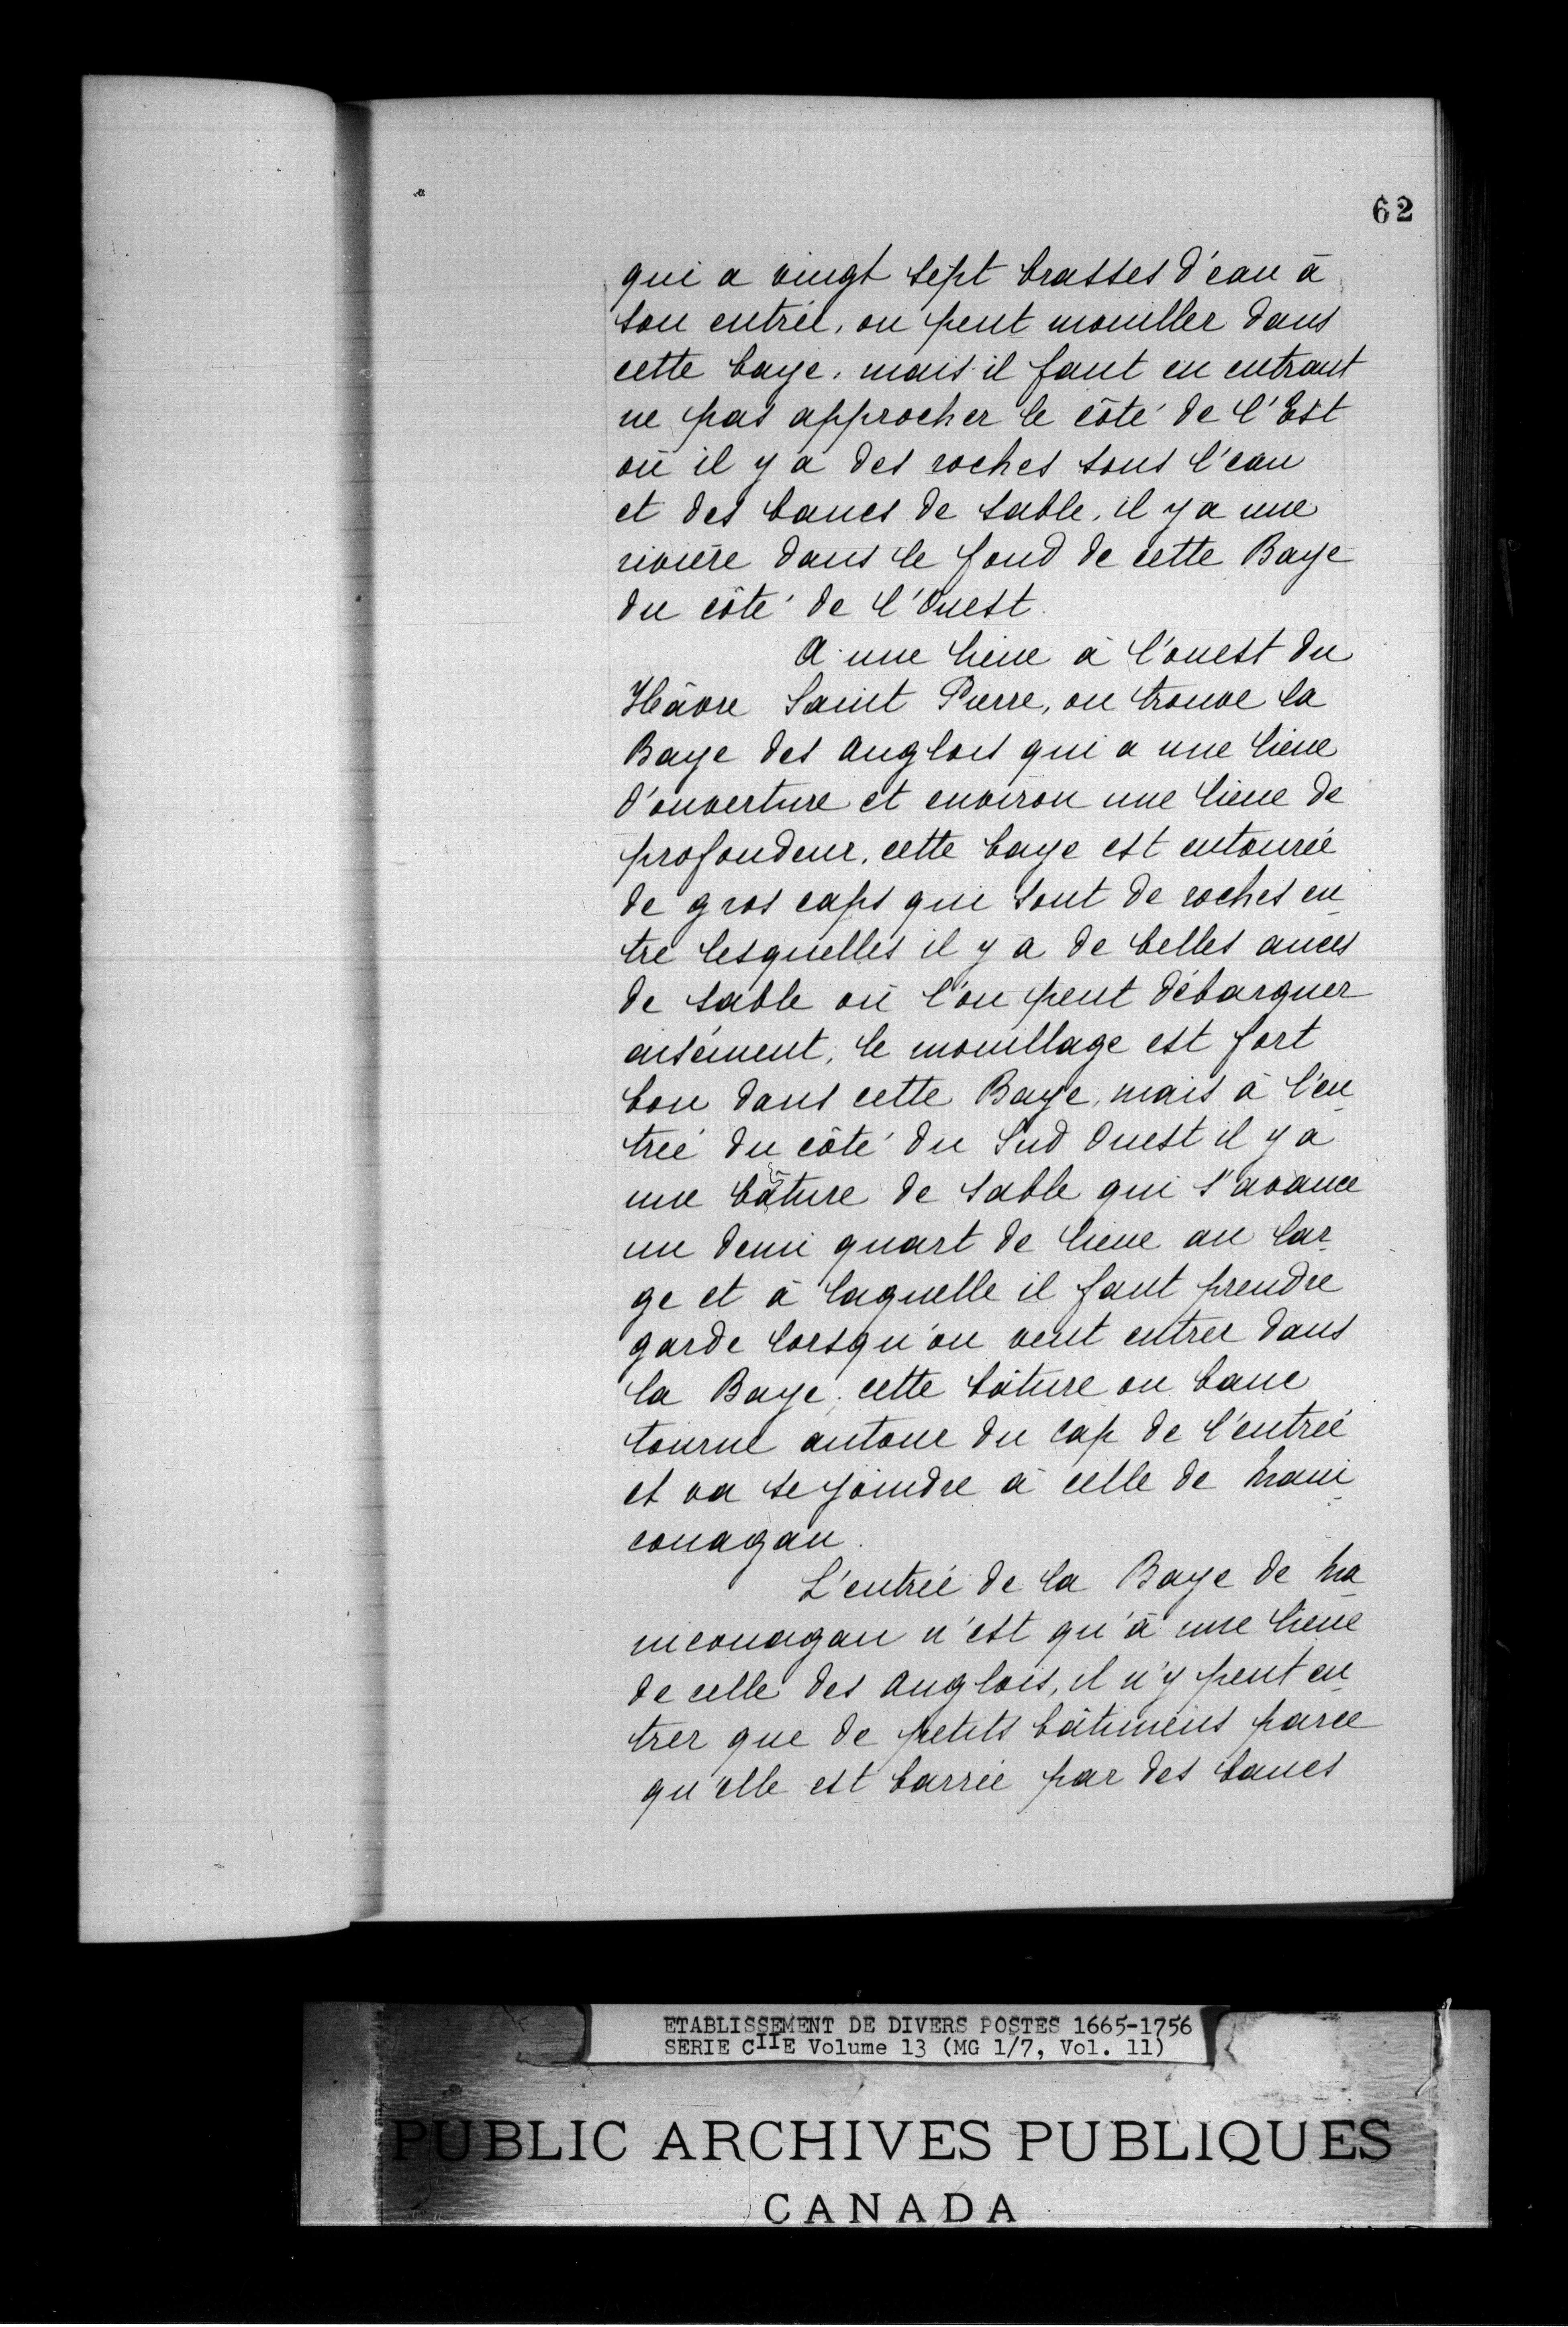 62
qui a vingt sept brasses d'eau à
son entrée, on peut mouiller dans
cette baye, mais il faut en entrant
ne pas approcher le côté de l'Est
où il y a des roches sous l'eau
et des bancs de sable, il y a une
rivière dans le fond de cette Baye
du côté de l'Ouest.
A une lieue à l'ouest du
Hâvre Saint Pierre, on trouve la
Baye des Anglois qui a une lieue
d'ouverture et environ une lieue de
profondeur, cette baye est entourée
de gros caps qui sont de roches en-
tre lesquelles il y a de belles ances
de sable où l'on peut débarquer
aisément, le mouillage est fort
bon dans cette Baye, mais à l'en-
trée du côté du Sud Ouest il y a
une bâture de sable qui s'avance
un demi quart de lieue au lar-
ge et à laquelle il faut prendre
garde lorsqu'on veut entrer dans
la Baye, cette bâture ou banc
tourne autour du cap de l'entrée
et va se joindre à celle de Mani-
couagan.
L'entrée de la Baye de Ma-
nicouagan n'est qu'à une lieue
de celle des Anglois, il n'y peut en-
trer que de petits bâtimens parce
qu'elle est barrée par des bancs
ETABLISSEMENT DE DIVERS POSTES 1665-1756
SERIE CIIE Volume 13 (MG 1/7, Vol. 11)
PUBLIC ARCHIVES PUBLIQUES
CANADA